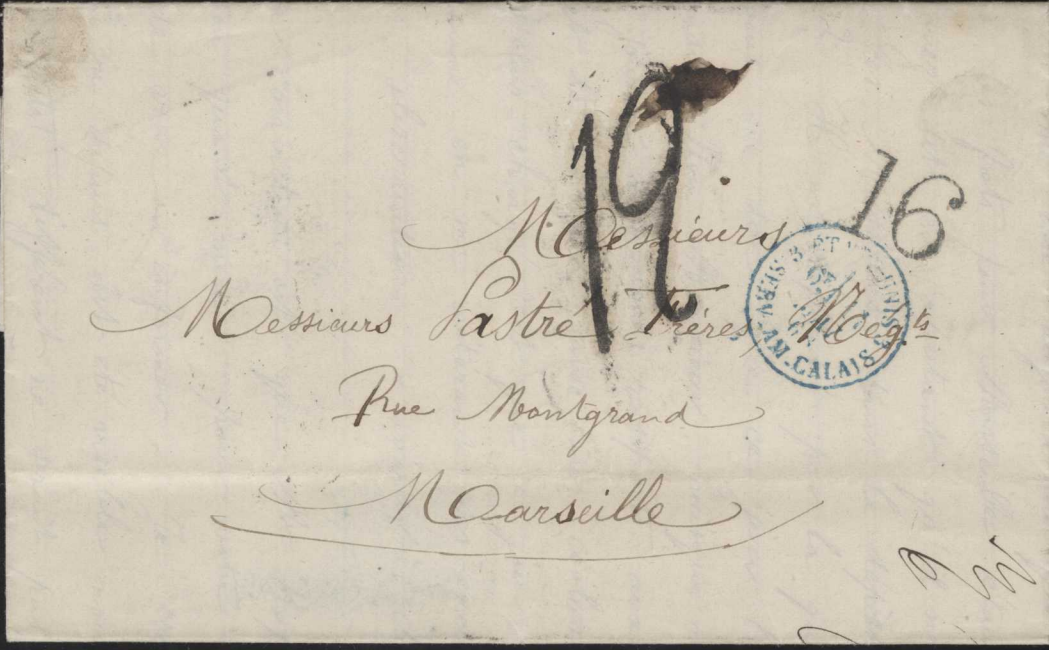 19
16
Messieurs
Messieurs Pastré Frères, Negts
AM. CALAIS
Rue Montgrand
Marseille